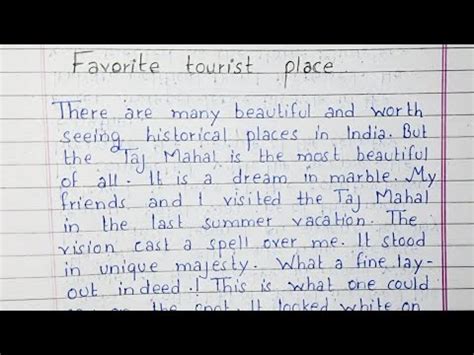 Favorite tourist place
There are many beautiful and worth
seeing historical places in India. But
the Taj Mahal is the most beautiful
of all. It is a dream in marble. My
friends and I visited the Taj Mahal
in the last summer vacation. The
vision cast a spell over me. It stood
in unique majesty. What a fine lay-
out indeed.! This is what one could
on the spot. It looked white on